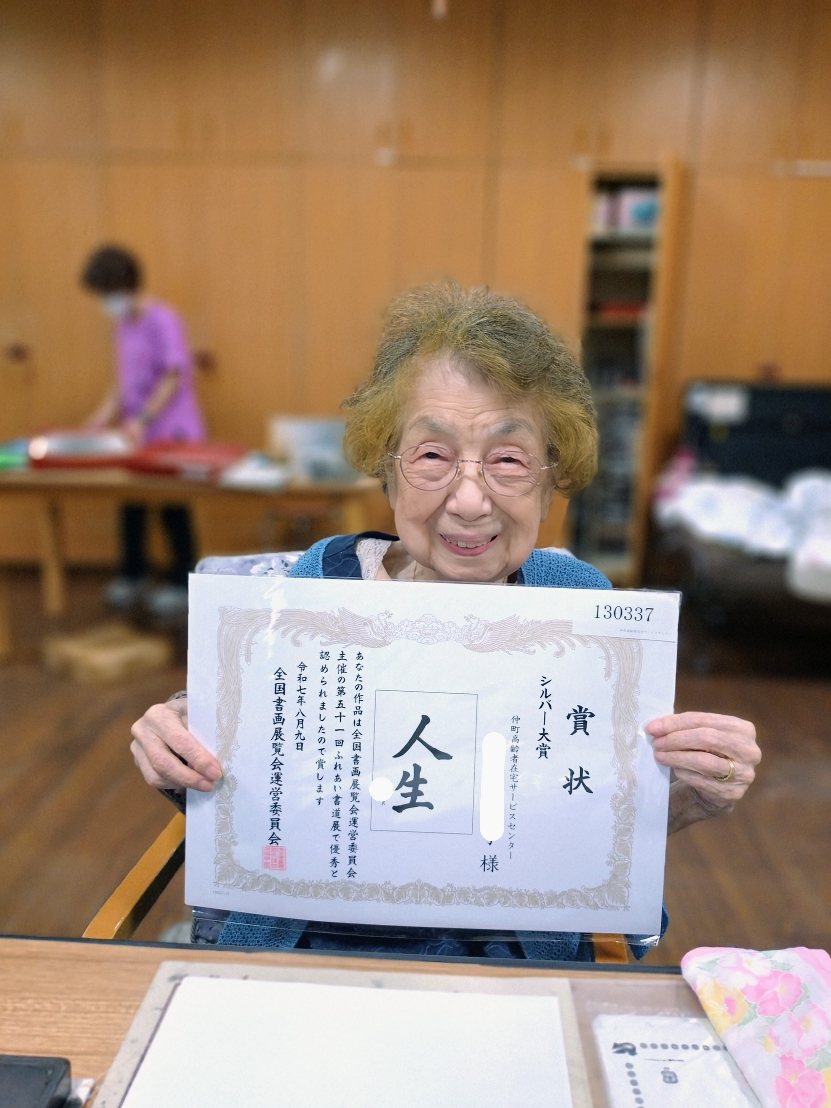 130337
賞状
シルバー大賞
仲町高齢者在宅サービスセンター
様
人生
あなたの作品は全国書画展覧会運営委員会
主催の第五十一回ふれあい書道展で優秀と
認められましたので賞します
令和七年八月九日
全国書画展覧会運営委員会